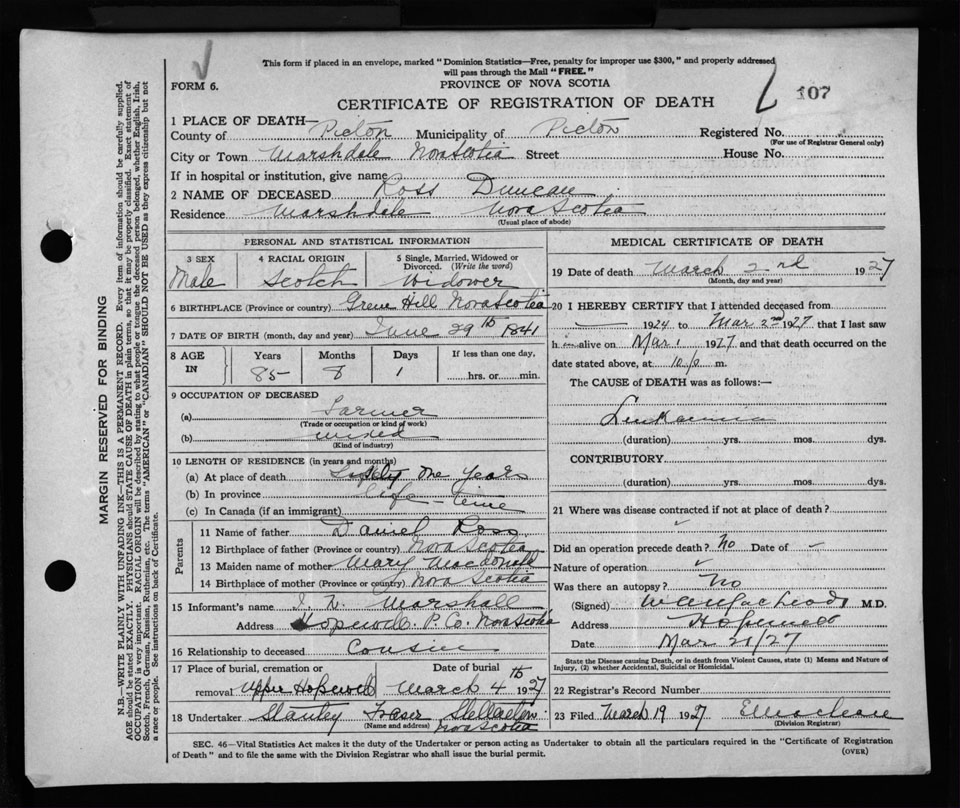 This form if placed in an envelope, marked "Dominion Statistics—Free, penalty for improper use $300," and properly addressed
will pass through the Mail "FREE."
FORM 6.
PROVINCE OF NOVA SCOTIA
107
CERTIFICATE OF REGISTRATION OF DEATH
1 PLACE OF DEATH—
County of Picton Municipality of Picton Registered No.
(For use of Registrar General only)
City or Town Marshdale Nova Scotia Street House No.
If in hospital or institution, give name
2 NAME OF DECEASED Ross Duncan
Residence Marshdale Nova Scotia
(Usual place of abode)
PERSONAL AND STATISTICAL INFORMATION
3 SEX 4 RACIAL ORIGIN 5 Single, Married, Widowed or
Divorced. (Write the word)
Male Scotch Widower
6 BIRTHPLACE (Province or country) Green Hill Nova Scotia
7 DATE OF BIRTH (month, day and year) June 29th 1841
8 AGE IN Years Months Days If less than one day,
85 8 1 hrs. or min.
9 OCCUPATION OF DECEASED
(a) Farmer
(Trade or occupation or kind of work)
(b) mixed
(Kind of industry)
10 LENGTH OF RESIDENCE (in years and months)
(a) At place of death Sixty one Years
(b) In province Life-time
(c) In Canada (if an immigrant)
Parents
11 Name of father Daniel Ross
12 Birthplace of father (Province or country) Nova Scotia
13 Maiden name of mother Mary Macdonald
14 Birthplace of mother (Province or country) Nova Scotia
15 Informant's name Marshall
Address Hopewell P. Co. Nova Scotia
16 Relationship to deceased Cousin
17 Place of burial, cremation or Date of burial
removal Upper Hopewell March 4th 1927
18 Undertaker Stanley Fraser Stellarton
(Name and address) Nova Scotia
MEDICAL CERTIFICATE OF DEATH
19 Date of death March 2nd 1927
(Month, day and year)
20 I HEREBY CERTIFY that I attended deceased from
1924 to Mar 2nd 1927 that I last saw
him alive on Mar 1 1927 and that death occurred on the
date stated above, at 10 p m.
The CAUSE of DEATH was as follows:—
Leukaemia
(duration) yrs. mos. dys.
CONTRIBUTORY
(duration) yrs. mos. dys.
21 Where was disease contracted if not at place of death?
Did an operation precede death? No Date of
Nature of operation
Was there an autopsy? No
(Signed) M.D.
Address Hopewell
Date Mar 21/27
State the Disease causing Death, or in death from Violent Causes, state (1) Means and Nature of
Injury, (2) whether Accidental, Suicidal or Homicidal.
22 Registrar's Record Number
23 Filed March 19 1927
(Division Registrar)
SEC. 46—Vital Statistics Act makes it the duty of the Undertaker or person acting as Undertaker to obtain all the particulars required in the "Certificate of Registration
of Death" and to file the same with the Division Registrar who shall issue the burial permit.
(OVER)
MARGIN RESERVED FOR BINDING
N.B.—WRITE PLAINLY WITH UNFADING INK—THIS IS A PERMANENT RECORD. Every item of information should be carefully supplied.
AGE should be stated EXACTLY. PHYSICIANS should STATE CAUSE OF DEATH in plain terms, so that it may be properly classified. Exact statement of
OCCUPATION is very important. RACIAL ORIGIN will be described by stating to what people or tongue the deceased person belonged, whether English, Irish,
Scotch, French, German, Russian, Ruthenian, etc. The terms "AMERICAN" or "CANADIAN" SHOULD NOT BE USED as they express citizenship but not
a race or people. See instructions on back of Certificate.